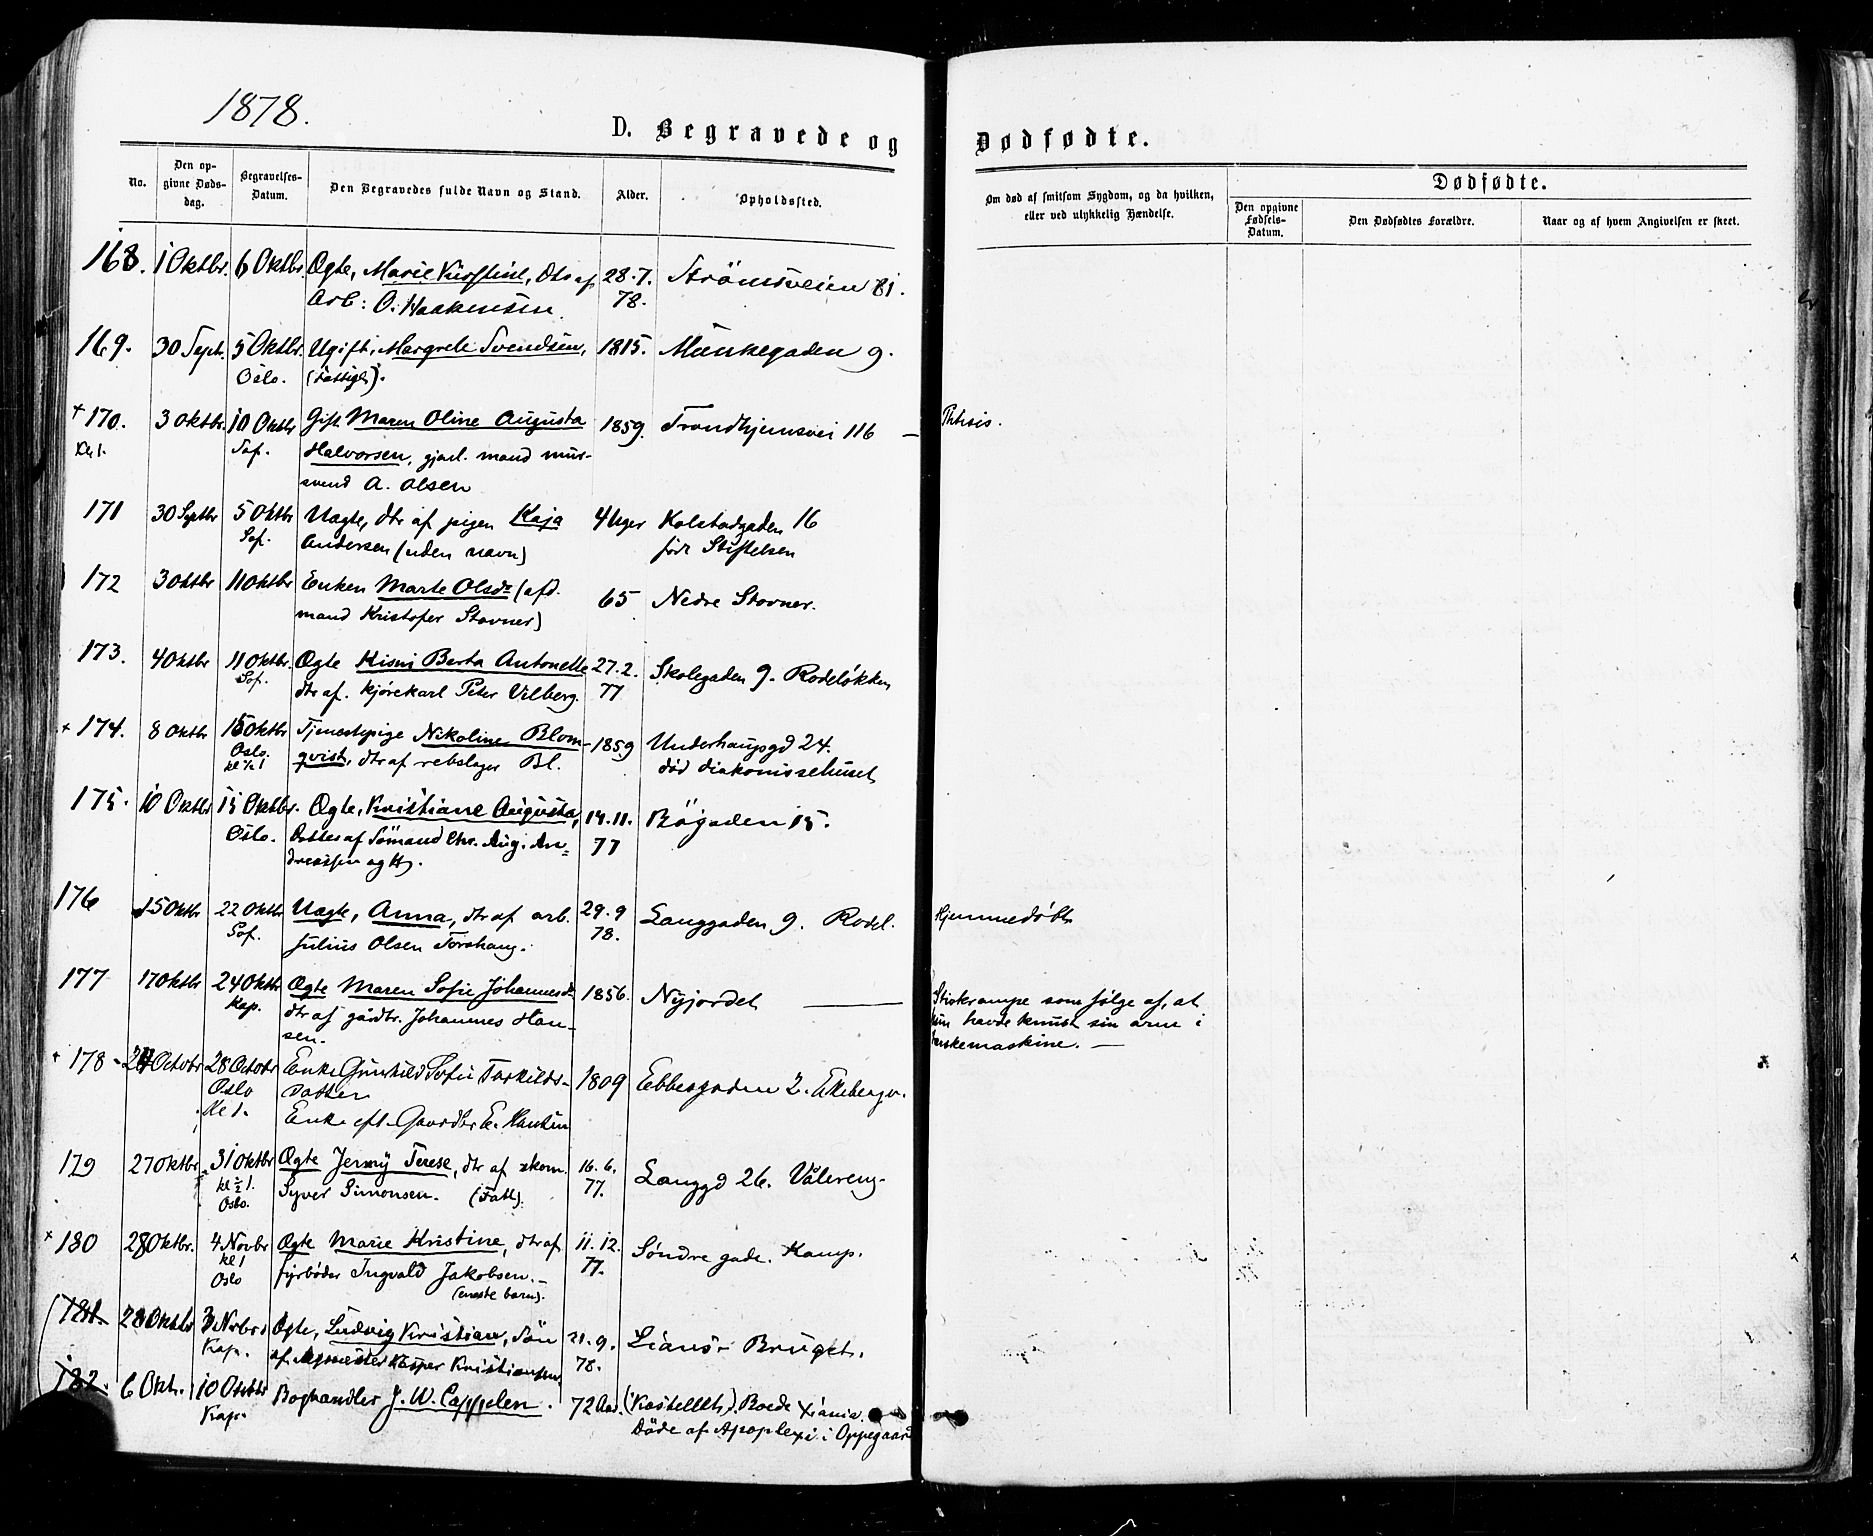 1878.
D. Begravede og Dødfødte.
No.
Den opgivne Dødsdag.
Begravelses-Datum.
Den Begravedes fulde Navn og Stand.
Alder.
Opholdssted.
Om død af smitsom Sygdom, og da hvilken, eller ved ulykkelig Hændelse.
Dødfødte.
Den opgivne Fødsels-Datum.
Den Dødfødtes Forældre.
Naar og af hvem Angivelsen er skeet.
168. 1 Oktbr. 6 Oktbr. Ægte, Marie Kirstine, Dtr af 28.7. Strömsveien 81.
Arb: O. Haakensen. 78.
169. 30 Sept. 5 Oktbr. Ugift, Margrete Svendsen, 1815. Munkegaden 9.
Oslo. (Fattigl).
+ 170. 3 Oktbr. 10 Oktbr Gift Maren Oline Augusta 1859. Trondhjemsvei 116 — Phtisis.
Kl 1. Sof. Halvorsen, gjenl. mand mur-
svend A. Olsen
171 30 Septbr 5 Oktbr Uægte, dtr af pigen Kaja 4 Uger Kolstadgaden 16
Sof. Andersen (uden navn) født Stiftelsen
172 3 Oktbr 11 Oktbr Enken Marte Olsdr (afd. 65 Nedre Stovner.
mand Kristofer Stovner)
173. 4 Oktbr 11 Oktbr. Ægte Berta Antonette 27.2. Skolegaden 9. Rodeløkken
Sof. dtr af kjørekarl Peter Vilberg. 77
+ 174. 8 Oktbr 15 Oktbr Tjenestepige Nikoline Blom- 1859 Underhaugsgd 24.
Oslo kl ½ 1 qvist, dtr af rebslager Bl. død diakonissehuset
175. 10 Oktbr 15 Oktbr. Ægte, Kristiane Augusta, 14.11. Bögaden 15.
Oslo. Datter af Sömand Chr. Aug. An= 77
dreassen og H.
176 15 Oktbr 22 Oktbr Uægte, Anna, dtr af arb. 29.9 Langgaden 9. Rodel. Hjemmedøbt
Sof. Julius Olsen Torshaug. 78.
177 17 Oktbr 24 Oktbr Ægte Maren Sofie Johannesdr 1856. Nyjordet — Stivkrampe som følge af, at
Kap. dtr af gårdbr. Johannes Han- hun havde knust sin arm i
sen. tærskemaskine. —
+ 178 24 Octobr 28 Octobr Enke Gunhild Sofie Torkilds- 1809 Ebbesgaden 2. Ekebergv.
Oslo datter
Kl 1. Enke eft. Gaardbr E. Hansen
179 27 Oktbr 31 Oktbr Ægte Jenny Terese, dtr af skom. 16.6. Langgd 26. Vålereng.
kl ½ 1. Syver Simonsen. (Fatt). 77.
Oslo.
+ 180 28 Oktbr. 4 Novbr Ægte Marie Kristine, dtr af 11.12. Søndre gade. Kamp.
kl 1 fyrbøder Ingvald Jakobsen. — 77.
Oslo (eneste barn).
181. 28 Oktbr 3 Novbr. Ægte, Ludvig Kristian, Sön 21.9. Lians-Bruget.
Kap. af Kasper Kristiansen 78.
182. 6 Okt. 10 Octbr Boghandler J. W. Cappelen. 72 Aar. (Kastellet). Boede Xiania.
Kap. Döde af Apoplexi i Oppegaard